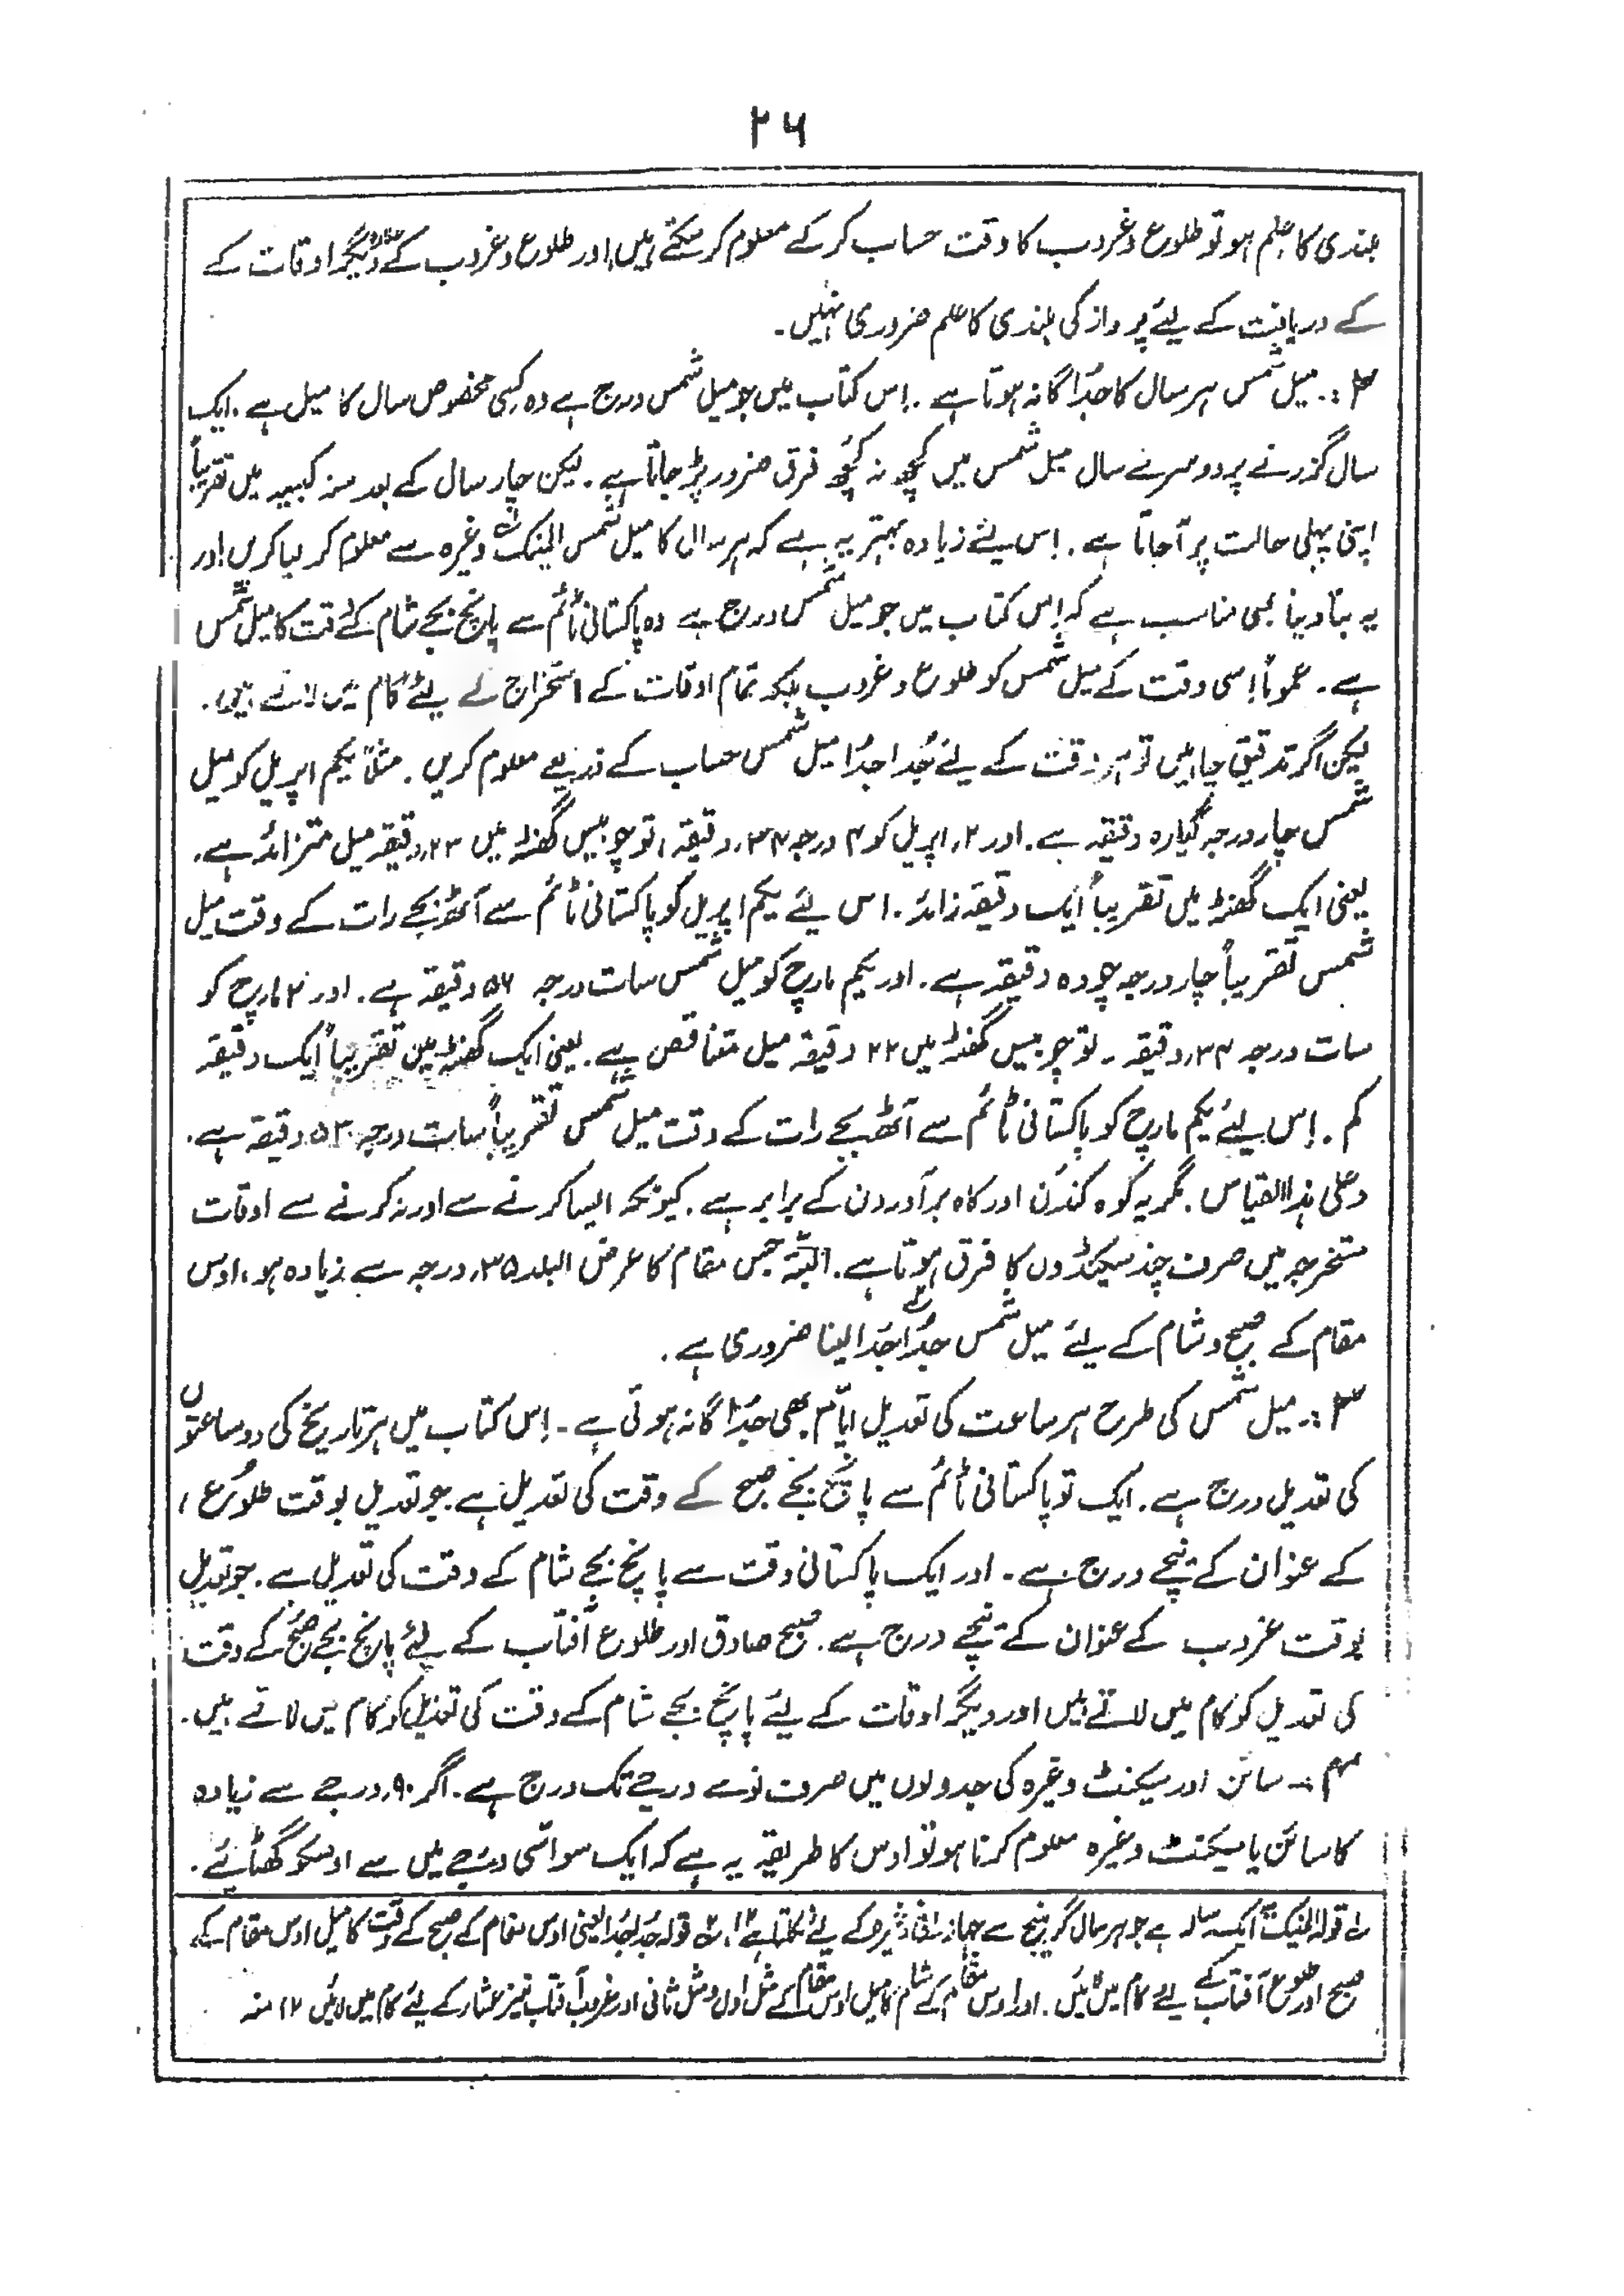 ۲۶
بلندی کا علم ہو تو طلوع وغروب کا وقت حساب کرکے معلوم کرسکتے ہیں اور طلوع وغروب کے علاوہ دیگر اوقات کے
کے دریافت کے لیئے پرواز کی بلندی کا علم ضروری نہیں۔
۲ :۔ میل شمس ہر سال کا جُداگانہ ہوتا ہے۔ اِس کتاب میں جو میل شمس درج ہے وہ کسِی مخصوص سال کا میل ہے۔ ایک
سال گذرنے پر دوسرے سال میل شمس میں کچھ نہ کچھ فرق ضرور پڑجاتا ہے۔ لیکن چار سال کے بعد سنہ کبیسہ میں تقریباً
اپنی پہلی حالت پر آجاتا ہے۔ اِس لیئے زیادہ بہتر یہ ہے کہ ہر سال کا میل شمس المینک لہ وغیرہ سے معلوم کرلیا کریں اور
یہ بتا دینا بھی مناسب ہے کہ اِس کتاب میں جو میل شمس درج ہے وہ پاکستانی ٹائم سے پانچ بجے شام کے وقت کا میل شمس
ہے۔ عموماً اِسی وقت کے میل شمس کو طلوع وغروب بلکہ تمام اوقات کے استخراج کے لیئے کام میں لاتے ہیں۔
لیکن اگر تدقیق چاہیں تو ہر وقت کے لیئے جُدا جُدا میل شمس حساب کے ذریعے معلوم کریں۔ مثلاً یکم اپریل کو میل
شمس چار درجہ گیارہ دقیقہ ہے۔ اور ۲؍ اپریل کو ۴ درجہ ۳۴؍ دقیقہ، تو چوبیس گھنٹہ میں ۲۳؍ دقیقہ میل متزائد ہے۔
یعنی ایک گھنٹہ میں تقریباً ایک دقیقہ زائد۔ اس لیئے یکم اپریل کو پاکستانی ٹائم سے آٹھ بجے رات کے وقت میل
شمس تقریباً چار درجہ چودہ دقیقہ ہے۔ اور یکم مارچ کو میل شمس سات درجہ ۵۶ دقیقہ ہے۔ اور ۲ مارچ کو
سات درجہ ۳۴؍ دقیقہ۔ تو چوبیس گھنٹہ میں ۲۲ دقیقہ میل متناقص ہے۔ یعنی ایک گھنٹہ میں تقریباً ایک دقیقہ
کم۔ اِس لیئے یکم مارچ کو پاکستانی ٹائم سے آٹھ بجے رات کے وقت میل شمس تقریباً سات درجہ ۵۳ دقیقہ ہے۔
وعلٰی ہذا القیاس۔ مگر یہ کوہ کندن اور کاہ برآوردن کے برابر ہے۔ کیونکہ ایسا کرنے سے اور نہ کرنے سے اوقات
مستخرجہ میں صرف چند سیکنڈوں کا فرق ہوتا ہے۔ البتّہ جس مقام کا عرض البلد ۳۵؍ درجہ سے زیادہ ہو، اوس
مقام کے صبح وشام کے لیئے میل شمس جُدا جُدا لینا ضروری ہے۔
۳ :۔ میل شمس کی طرح ہر ساعت کی تعدیل ایّام بھی جُداگانہ ہوتی ہے۔ اِس کتاب میں ہر تاریخ کی دو ساعتوں
کی تعدیل درج ہے۔ ایک تو پاکستانی ٹائم سے پانچ بجے صبح کے وقت کی تعدیل ہے جو تعدیل بوقت طلوُع ،
کے عنوان کے نیچے درج ہے۔ اور ایک پاکستانی وقت سے پانچ بجے شام کے وقت کی تعدیل ہے۔ جو تعدیل
بوقت غروب کے عنوان کے نیچے درج ہے۔ صبح صادق اور طلوع آفتاب کے لیئے پانچ بجے صبح کے وقت
کی تعدیل کو کام میں لاتے ہیں اور دیگر اوقات کے لیئے پانچ بجے شام کے وقت کی تعدیل کو کام میں لاتے ہیں۔
۴ :۔ سائن اور سیکنٹ وغیرہ کی جدولوں میں صرف نوّے درجے تک درج ہے۔ اگر ۹۰؍ درجے سے زیادہ
کا سائن یا سیکنٹ وغیرہ معلوم کرنا ہو تو اوس کا طریقہ یہ ہے کہ ایک سو اسّی درجے میں سے اوسکو گھٹائے۔
لہ قولہ المینک ایک رسالہ ہے جو ہر سال گرینیج سے جہاز رانی وغیرہ کے لیئے نکلتا ہے ۱۲۔ ۲ہ قولہ جُدا جُدا یعنی اوس مقام کے صبح کے وقت کا میل اوس مقام کے
صبح اور طلوع آفتاب کے لیئے کام میں لائیں۔ اور اوس مقام کے شام کا میل اوس مقام کے مثل اول ومثل ثانی اور غروب آفتاب نیز عشار کے لیئے کام میں لائیں ۱۲ منہ